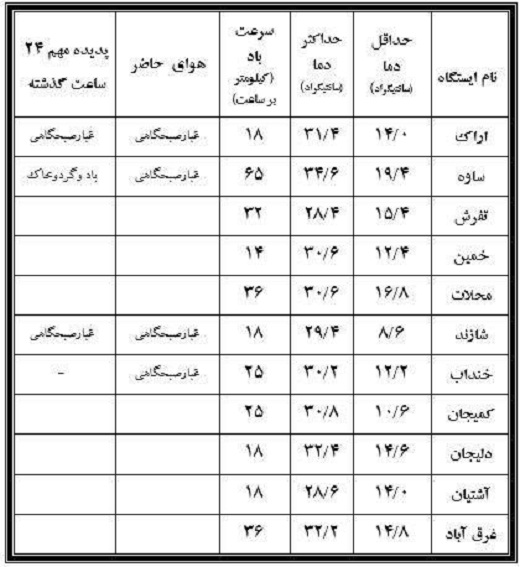 نام ایستگاه حداقل دما (سانتیگراد) حداکثر دما (سانتیگراد) سرعت باد (کیلومتر بر ساعت) هوای حاضر پدیده مهم ۲۴ ساعت گذشته
اراک ۱۴/۰ ۳۱/۴ ۱۸ غبارصبحگاهی غبارصبحگاهی
ساوه ۱۹/۴ ۳۴/۶ ۶۵ غبارصبحگاهی باد وگردوخاک
تفرش ۱۵/۴ ۲۸/۴ ۳۲
خمین ۱۲/۴ ۳۰/۶ ۱۴
محلات ۱۶/۸ ۳۰/۶ ۳۶
شازند ۸/۶ ۲۹/۴ ۱۸ غبارصبحگاهی غبارصبحگاهی
خنداب ۱۲/۲ ۳۰/۲ ۲۵ غبارصبحگاهی -
کمیجان ۱۰/۶ ۳۰/۸ ۲۵
دلیجان ۱۴/۶ ۳۲/۴ ۱۸
آشتیان ۱۴/۰ ۲۸/۶ ۱۸
غرق آباد ۱۴/۸ ۳۲/۲ ۳۶